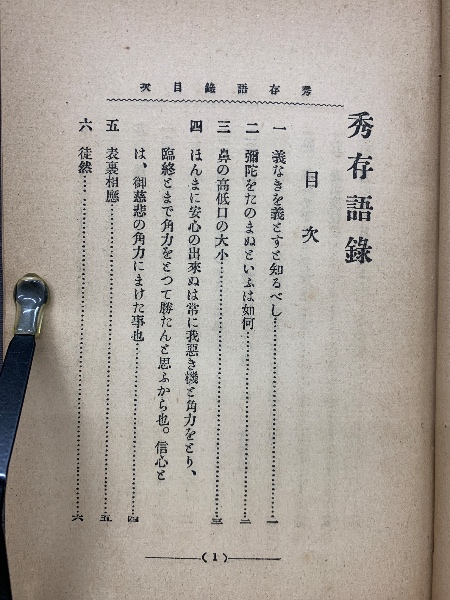 秀存語錄目次
秀存語錄
目次
一 義なきを義とすと知るべし……一
二 彌陀をたのまぬといふは如何……二
三 鼻の高低口の大小……三
四 ほんまに安心の出來ぬは常に我惡き機と角力をとり、
臨終とまで角力をとつて勝たんと思ふから也。信心と
は、御慈悲の角力にまけた事也……四
五 表裏相應……五
六 徒然……六
(1)